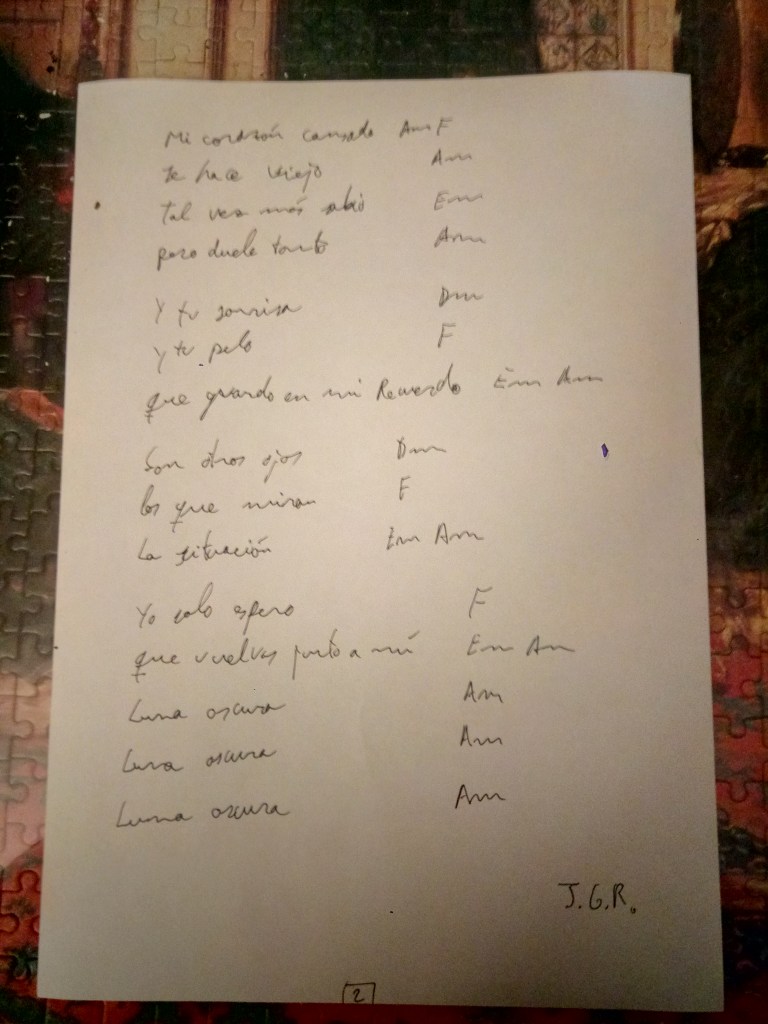 Mi corazón cansado Am F
se hace viejo Am
tal vez más sabio Em
pero duele tanto Am
Y tu sonrisa Dm
Y tu pelo F
que guardo en mi Recuerdo Em Am
Son otros ojos Dm
los que miran F
La situación Em Am
Yo solo espero F
que vuelvas junto a mí Em Am
Luna oscura Am
Luna oscura Am
Luna oscura Am
J.G.R.
2